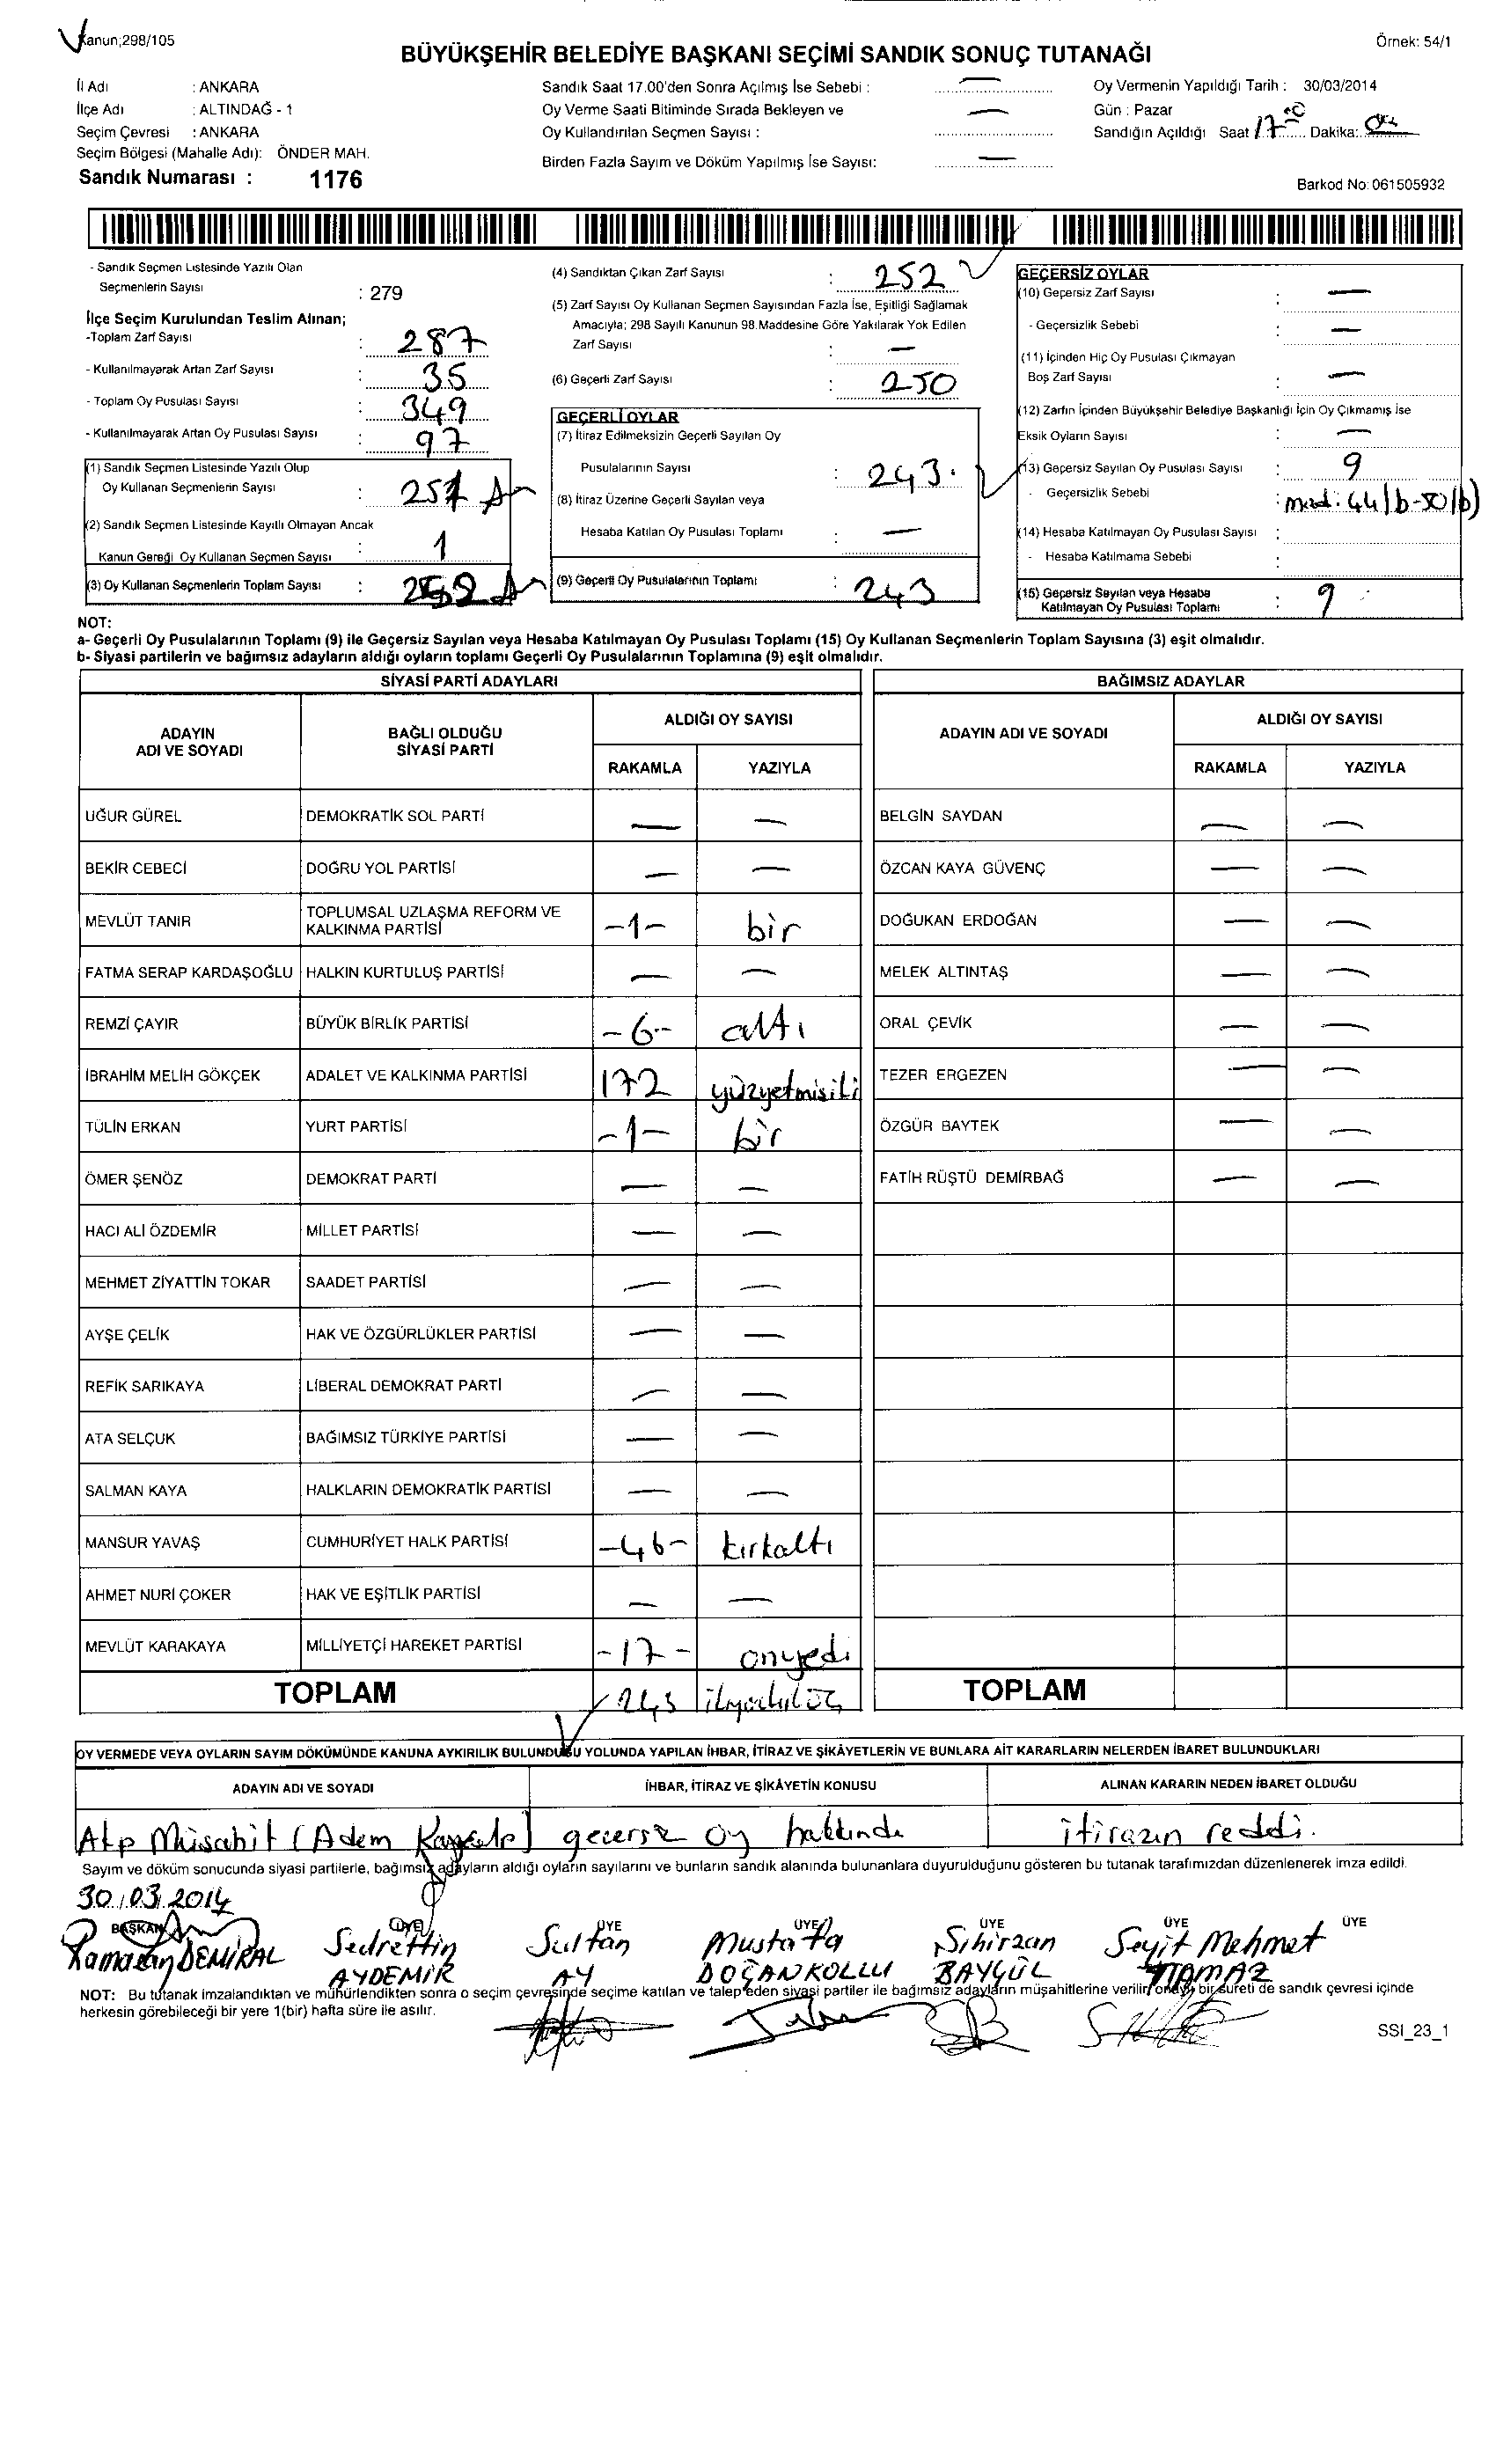 Kanun;298/105
Örnek: 54/1
BÜYÜKŞEHİR BELEDİYE BAŞKANI SEÇİMİ SANDIK SONUÇ TUTANAĞI
İl Adı : ANKARA
İlçe Adı : ALTINDAĞ - 1
Seçim Çevresi : ANKARA
Seçim Bölgesi (Mahalle Adı): ÖNDER MAH.
Sandık Numarası : 1176
Sandık Saat 17.00'den Sonra Açılmış İse Sebebi : —
Oy Verme Saati Bitiminde Sırada Bekleyen ve —
Oy Kullandırılan Seçmen Sayısı :
Birden Fazla Sayım ve Döküm Yapılmış İse Sayısı: —
Oy Vermenin Yapıldığı Tarih : 30/03/2014
Gün : Pazar
Sandığın Açıldığı Saat 17 Dakika:
Barkod No: 061505932
- Sandık Seçmen Listesinde Yazılı Olan
Seçmenlerin Sayısı : 279
İlçe Seçim Kurulundan Teslim Alınan;
-Toplam Zarf Sayısı : 287
- Kullanılmayarak Artan Zarf Sayısı : 35
- Toplam Oy Pusulası Sayısı : 349
- Kullanılmayarak Artan Oy Pusulası Sayısı : 97
(1) Sandık Seçmen Listesinde Yazılı Olup
Oy Kullanan Seçmenlerin Sayısı : 251
(2) Sandık Seçmen Listesinde Kayıtlı Olmayan Ancak
Kanun Gereği Oy Kullanan Seçmen Sayısı : 1
(3) Oy Kullanan Seçmenlerin Toplam Sayısı : 252
(4) Sandıktan Çıkan Zarf Sayısı : 252
(5) Zarf Sayısı Oy Kullanan Seçmen Sayısından Fazla İse, Eşitliği Sağlamak
Amacıyla; 298 Sayılı Kanunun 98.Maddesine Göre Yakılarak Yok Edilen
Zarf Sayısı : —
(6) Geçerli Zarf Sayısı : 250
GEÇERLİ OYLAR
(7) İtiraz Edilmeksizin Geçerli Sayılan Oy
Pusulalarının Sayısı : 243
(8) İtiraz Üzerine Geçerli Sayılan veya
Hesaba Katılan Oy Pusulası Toplamı : —
(9) Geçerli Oy Pusulalarının Toplamı : 243
GEÇERSİZ OYLAR
(10) Geçersiz Zarf Sayısı : —
- Geçersizlik Sebebi : —
(11) İçinden Hiç Oy Pusulası Çıkmayan
Boş Zarf Sayısı : —
(12) Zarfın İçinden Büyükşehir Belediye Başkanlığı İçin Oy Çıkmamış İse
Eksik Oyların Sayısı : —
(13) Geçersiz Sayılan Oy Pusulası Sayısı : 9
- Geçersizlik Sebebi : mad: 44/b-50/b)
(14) Hesaba Katılmayan Oy Pusulası Sayısı :
- Hesaba Katılmama Sebebi :
(15) Geçersiz Sayılan veya Hesaba
Katılmayan Oy Pusulası Toplamı : 9
NOT:
a- Geçerli Oy Pusulalarının Toplamı (9) ile Geçersiz Sayılan veya Hesaba Katılmayan Oy Pusulası Toplamı (15) Oy Kullanan Seçmenlerin Toplam Sayısına (3) eşit olmalıdır.
b- Siyasi partilerin ve bağımsız adayların aldığı oyların toplamı Geçerli Oy Pusulalarının Toplamına (9) eşit olmalıdır.
SİYASİ PARTİ ADAYLARI
ADAYIN ADI VE SOYADI BAĞLI OLDUĞU SİYASİ PARTİ ALDIĞI OY SAYISI
RAKAMLA YAZIYLA
UĞUR GÜREL DEMOKRATİK SOL PARTİ — —
BEKİR CEBECİ DOĞRU YOL PARTİSİ — —
MEVLÜT TANIR TOPLUMSAL UZLAŞMA REFORM VE KALKINMA PARTİSİ -1- bir
FATMA SERAP KARDAŞOĞLU HALKIN KURTULUŞ PARTİSİ — —
REMZİ ÇAYIR BÜYÜK BİRLİK PARTİSİ -6- altı
İBRAHİM MELİH GÖKÇEK ADALET VE KALKINMA PARTİSİ 172 yüzyetmişiki
TÜLİN ERKAN YURT PARTİSİ -1- bir
ÖMER ŞENÖZ DEMOKRAT PARTİ — —
HACI ALİ ÖZDEMİR MİLLET PARTİSİ — —
MEHMET ZİYATTİN TOKAR SAADET PARTİSİ — —
AYŞE ÇELİK HAK VE ÖZGÜRLÜKLER PARTİSİ — —
REFİK SARIKAYA LİBERAL DEMOKRAT PARTİ — —
ATA SELÇUK BAĞIMSIZ TÜRKİYE PARTİSİ — —
SALMAN KAYA HALKLARIN DEMOKRATİK PARTİSİ — —
MANSUR YAVAŞ CUMHURİYET HALK PARTİSİ -46- kırkaltı
AHMET NURİ ÇOKER HAK VE EŞİTLİK PARTİSİ — —
MEVLÜT KARAKAYA MİLLİYETÇİ HAREKET PARTİSİ -17- onyedi
TOPLAM 243
BAĞIMSIZ ADAYLAR
ADAYIN ADI VE SOYADI ALDIĞI OY SAYISI
RAKAMLA YAZIYLA
BELGİN SAYDAN — —
ÖZCAN KAYA GÜVENÇ — —
DOĞUKAN ERDOĞAN — —
MELEK ALTINTAŞ — —
ORAL ÇEVİK — —
TEZER ERGEZEN — —
ÖZGÜR BAYTEK — —
FATİH RÜŞTÜ DEMİRBAĞ — —
TOPLAM
OY VERMEDE VEYA OYLARIN SAYIM DÖKÜMÜNDE KANUNA AYKIRILIK BULUNDUĞU YOLUNDA YAPILAN İHBAR, İTİRAZ VE ŞİKÂYETLERİN VE BUNLARA AİT KARARLARIN NELERDEN İBARET BULUNDUKLARI
ADAYIN ADI VE SOYADI İHBAR, İTİRAZ VE ŞİKÂYETİN KONUSU ALINAN KARARIN NEDEN İBARET OLDUĞU
Akp Müşahit (Adem geçersiz oy hakkında itirazın reddi.
Sayım ve döküm sonucunda siyasi partilerle, bağımsız adayların aldığı oyların sayılarını ve bunların sandık alanında bulunanlara duyurulduğunu gösteren bu tutanak tarafımızdan düzenlenerek imza edildi.
30.03.2014
BAŞKAN ÜYE ÜYE ÜYE ÜYE ÜYE ÜYE
Ramazan DEMİRAL Sedrettin AYDEMİR Sultan AY Mustafa DOĞANKOLLU Sihirzan BAYGÜL Seyit Mehmet
NOT: Bu tutanak imzalandıktan ve mühürlendikten sonra o seçim çevresinde seçime katılan ve talep eden siyasi partiler ile bağımsız adayların müşahitlerine verilir, onaylı bir sureti de sandık çevresi içinde
herkesin görebileceği bir yere 1(bir) hafta süre ile asılır.
SSI_23_1